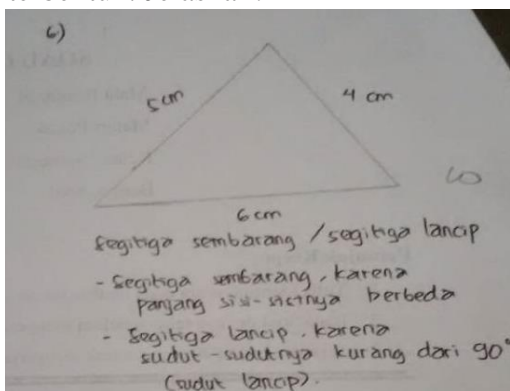 6)
5 cm
4 cm
6 cm
segitiga sembarang / segitiga lancip
- Segitiga sembarang, karena
panjang sisi-sisinya berbeda
- Segitiga lancip. karena
sudut-sudutnya kurang dari 90°
(sudut lancip).